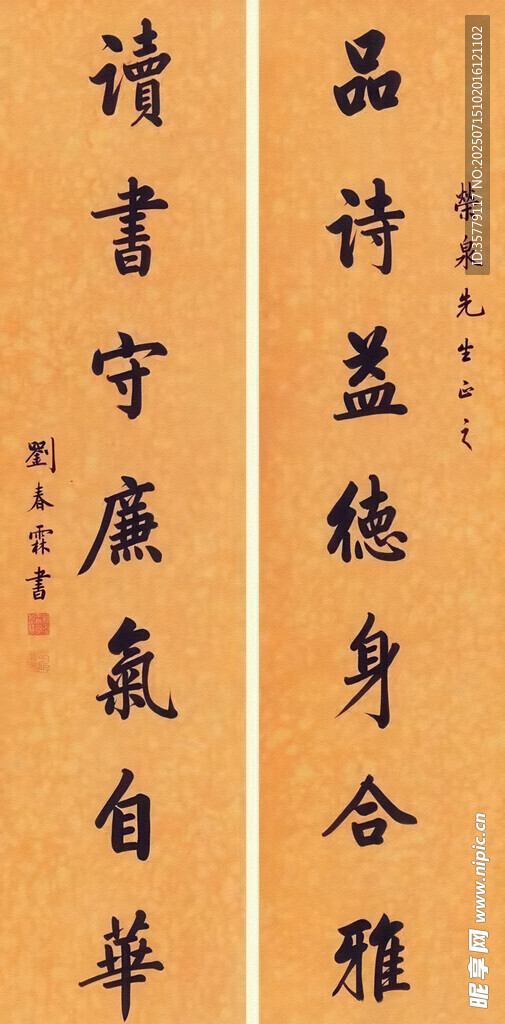 榮泉先生正之
品詩益德身合雅
讀書守廉氣自華
劉春霖書
ID:35779117 NO:20250715102016121102
昵享网 www.nipic.cn